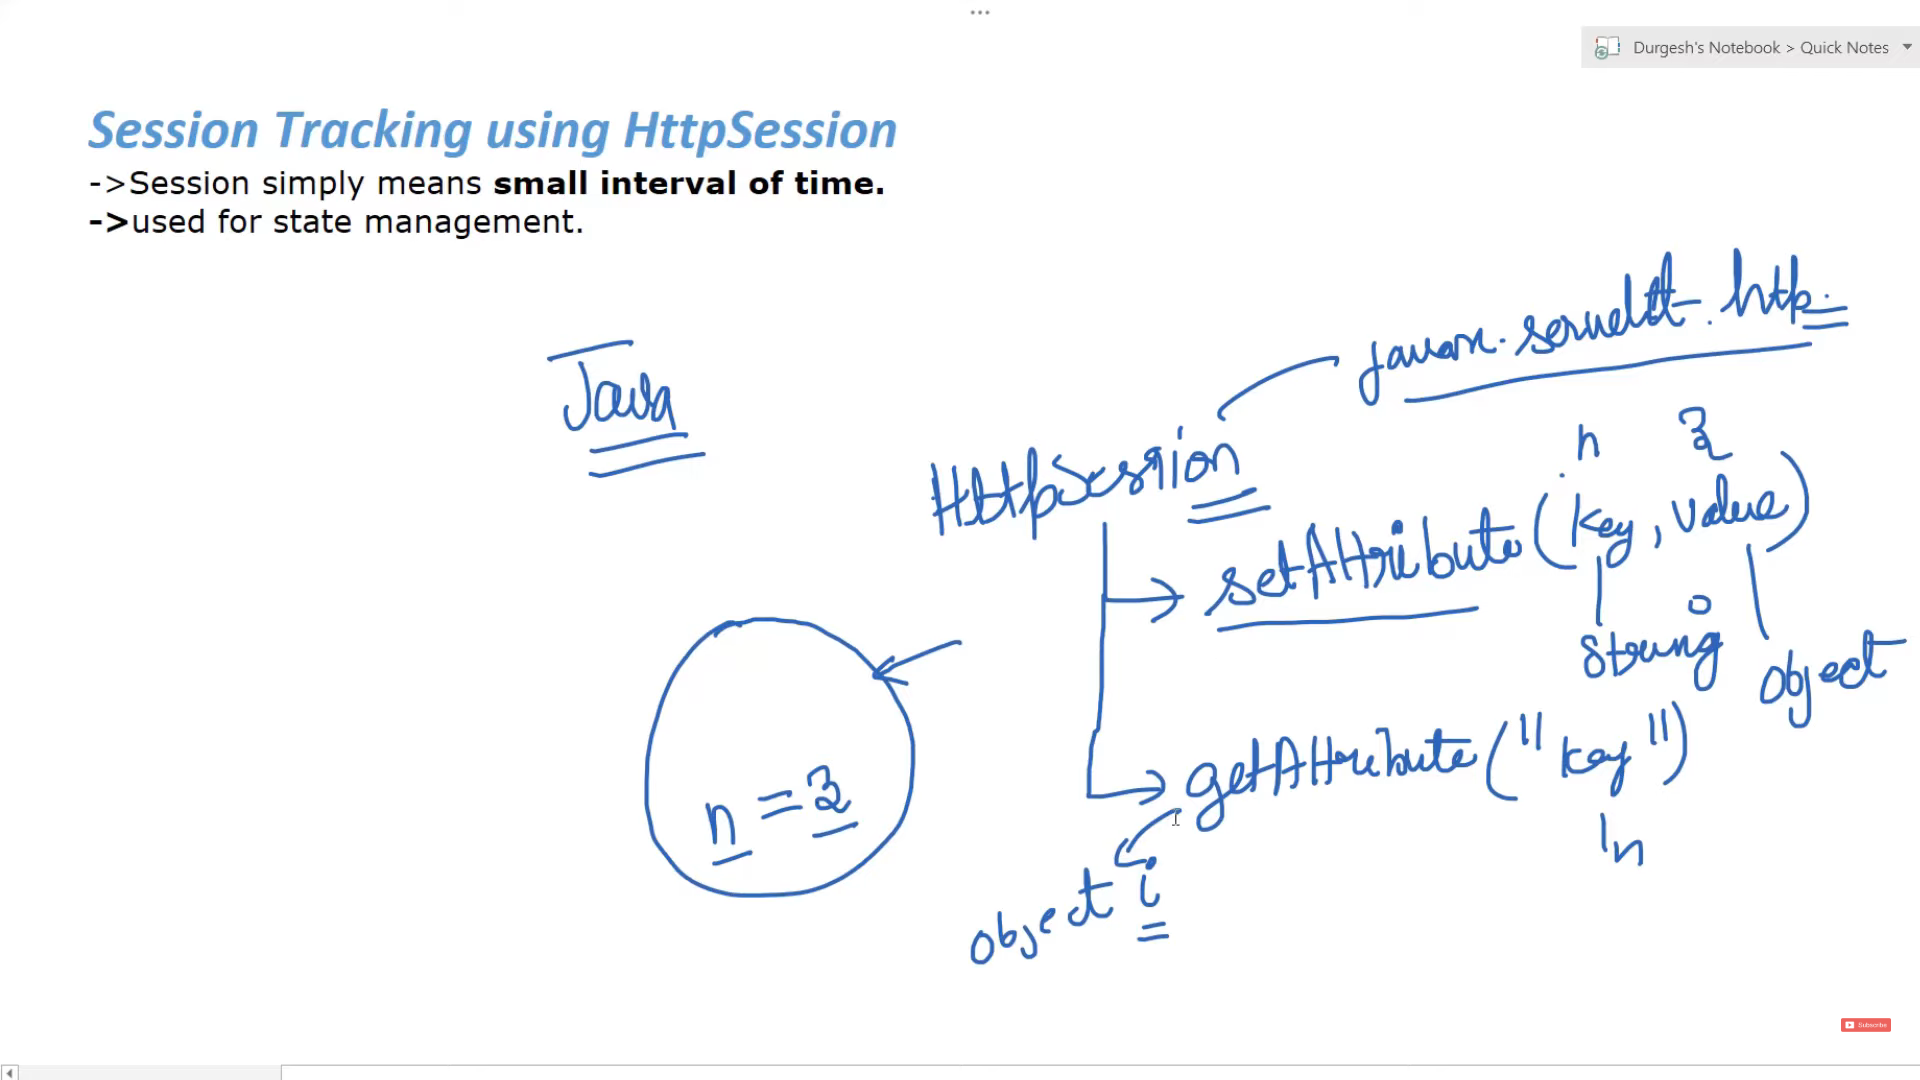 Durgesh's Notebook > Quick Notes
Session Tracking using HttpSession
->Session simply means small interval of time.
->used for state management.
javax.servlet.http.
Java
n
HttpSession
setAttribute(key, value)
String
object
getAttribute("key")
n = 2
n
object i
Subscribe